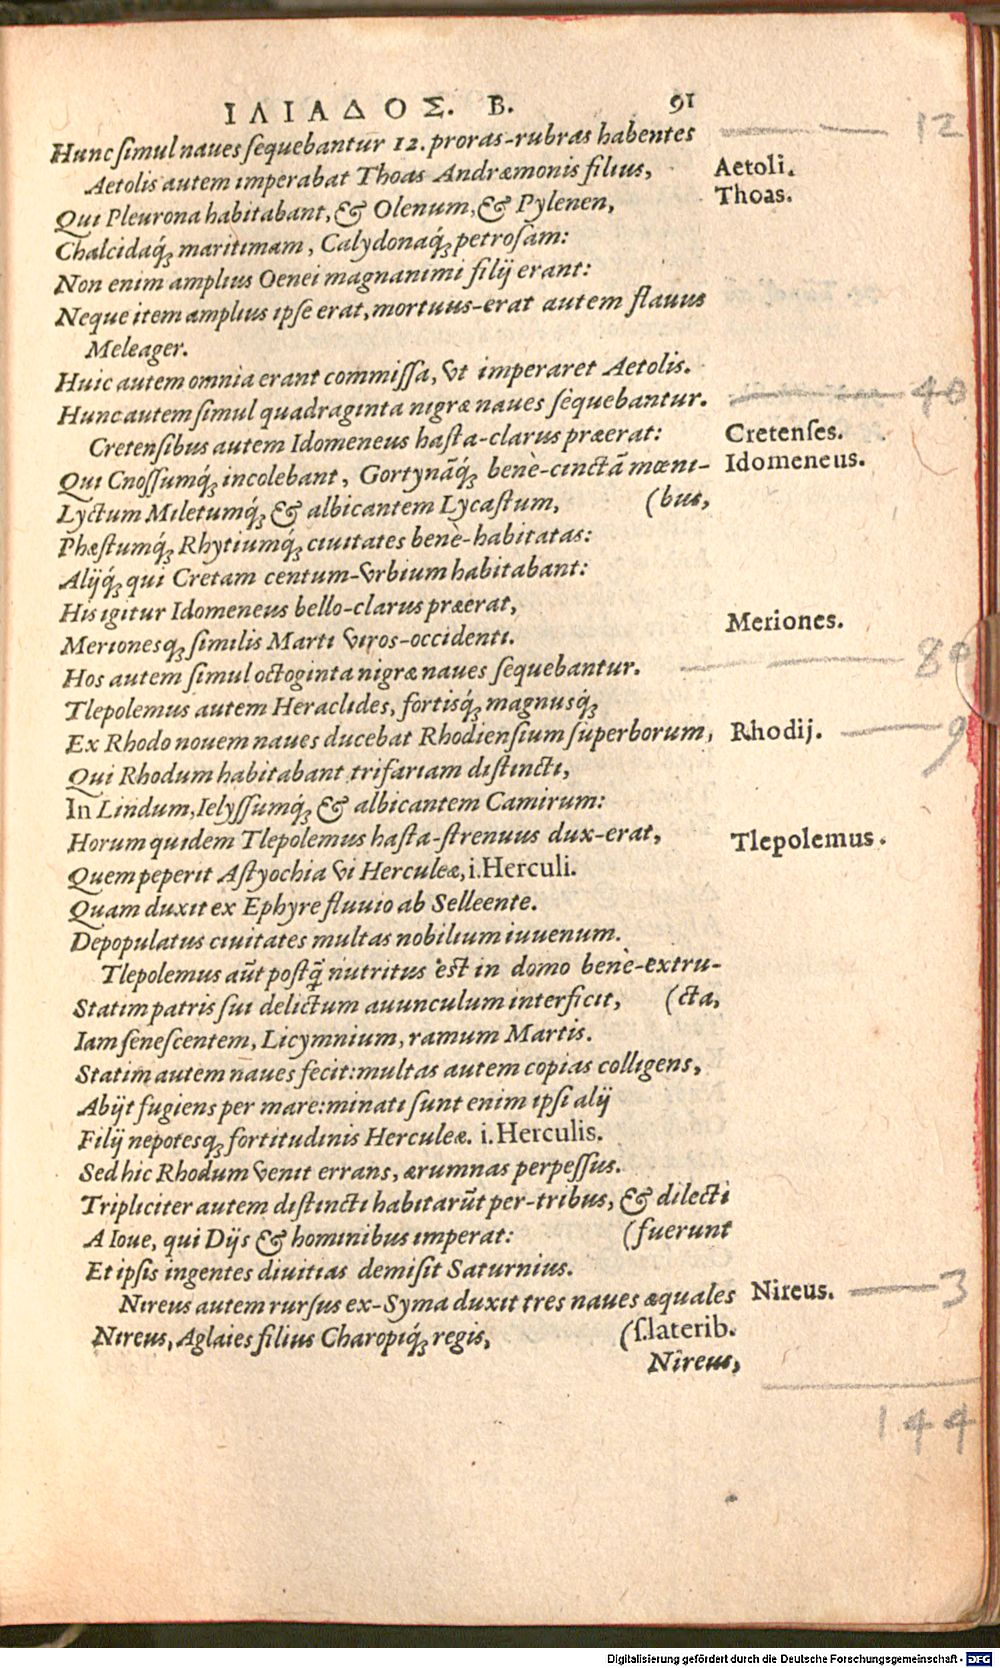 ΙΛΙΑΔΟΣ. Β. 91
Hunc simul naues sequebantur 12. proras-rubras habentes — 12
Aetolis autem imperabat Thoas Andræmonis filius, Aetoli.
Qui Pleurona habitabant, & Olenum, & Pylenen, Thoas.
Chalcidaq́; maritimam, Calydonaq́; petrosam:
Non enim amplius Oenei magnanimi filij erant:
Neque item amplius ipse erat, mortuus-erat autem flauus
Meleager.
Huic autem omnia erant commissa, vt imperaret Aetolis.
Hunc autem simul quadraginta nigræ naues sequebantur. — 40
Cretensibus autem Idomeneus hasta-clarus præerat: Cretenses.
Qui Cnossumq́; incolebant, Gortynāq́; benè-cinctā mœni- Idomeneus.
Lyctum Miletumq́; & albicantem Lycastum, (bus,
Phæstumq́; Rhytiumq́; ciuitates benè-habitatas:
Alijq́; qui Cretam centum-vrbium habitabant:
His igitur Idomeneus bello-clarus præerat,
Merionesq; similis Marti viros-occidenti. Meriones.
Hos autem simul octoginta nigræ naues sequebantur. — 80
Tlepolemus autem Heraclides, fortisq́; magnusq́;
Ex Rhodo nouem naues ducebat Rhodiensium superborum, Rhodij. — 9
Qui Rhodum habitabant trifariam distincti,
In Lindum, Ielyssumq́; & albicantem Camirum:
Horum quidem Tlepolemus hasta-strenuus dux-erat, Tlepolemus.
Quem peperit Astyochia vi Herculeæ, i. Herculi.
Quam duxit ex Ephyre fluuio ab Selleente.
Depopulatus ciuitates multas nobilium iuuenum.
Tlepolemus aūt postq̄ nutritus est in domo benè-extru-
Statim patris sui delictum auunculum interficit, (cta,
Iam senescentem, Licymnium, ramum Martis.
Statim autem naues fecit: multas autem copias colligens,
Abijt fugiens per mare: minati sunt enim ipsi alij
Filij nepotesq; fortitudinis Herculeæ. i. Herculis.
Sed hic Rhodum venit errans, ærumnas perpessus.
Tripliciter autem distincti habitarūt per-tribus, & dilecti
A Ioue, qui Dijs & hominibus imperat: (fuerunt
Et ipsis ingentes diuitias demisit Saturnius.
Nireus autem rursus ex-Syma duxit tres naues æquales Nireus. — 3
Nireus, Aglaies filius Charopiq́; regis, (s. laterib.
Nireus,
144
Digitalisierung gefördert durch die Deutsche Forschungsgemeinschaft - DFG